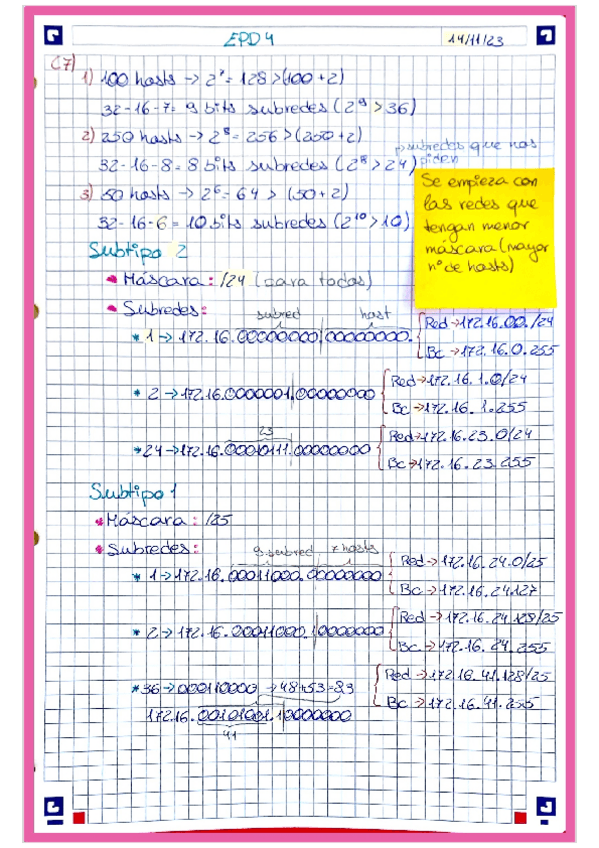 EPD 4
14/11/23
C7)
1) 100 hosts → 2⁷ = 128 > (100 + 2)
32 - 16 - 7 = 9 bits subredes (2⁹ > 36)
2) 250 hosts → 2⁸ = 256 > (250 + 2)
→ subredes que nos piden
32 - 16 - 8 = 8 bits subredes (2⁸ > 24)
3) 50 hosts → 2⁶ = 64 > (50 + 2)
32 - 16 - 6 = 10 bits subredes (2¹⁰ > 10)
Se empieza con
las redes que
tengan menor
máscara (mayor
nº de hosts)
Subtipo 2
Máscara: /24 (para todos)
Subredes:
subred host
* 1 → 172.16.00000000|00000000.
Red → 172.16.00./24
Bc → 172.16.0.255
* 2 → 172.16.0000001.00000000
Red → 172.16.1.0/24
Bc → 172.16.1.255
23
* 24 → 172.16.00010111.00000000
Red → 172.16.23.0/24
Bc → 172.16.23.255
Subtipo 1
* Máscara: /25
* Subredes:
9 subred 7 hosts
* 1 → 172.16.00011000.00000000
Red → 172.16.24.0/25
Bc → 172.16.24.127
* 2 → 172.16.00011000.10000000
Red → 172.16.24.128/25
Bc → 172.16.24.255
* 36 → 000110000 → 48+53=83
Red → 172.16.41.128/25
Bc → 172.16.41.255
172.16.00101001.10000000
41